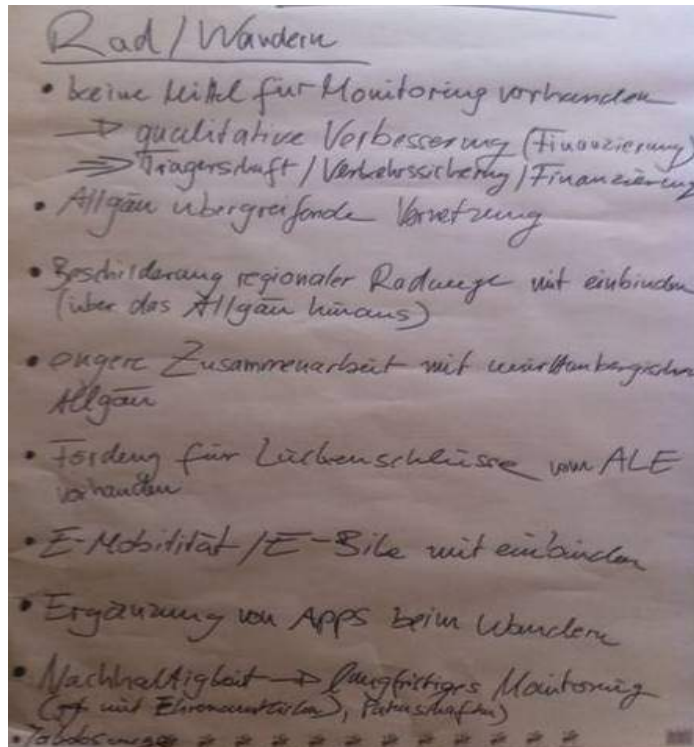 Rad/Wandern
• keine Mittel für Monitoring vorhanden
→ qualitative Verbesserung (Finanzierung)
⇒ Trägerschaft/Verkehrssicherung/Finanzierung
• Allgäu übergreifende Vernetzung
• Beschilderung regionaler Radwege mit einbinden
(über das Allgäu hinaus)
• engere Zusammenarbeit mit württembergischen
Allgäu
• Förderung für Lückenschlüsse vom ALE
vorhanden
• E-Mobilität/E-Bike mit einbinden
• Ergänzung von Apps beim Wandern
• Nachhaltigkeit → langfristiges Monitoring
mit Ehrenamtlichen), Patenschaften)